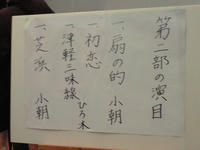 第二部の演目
一、扇の的 小朝
一、初恋 ひろ木
一、津軽三味線
一、芝浜 小朝